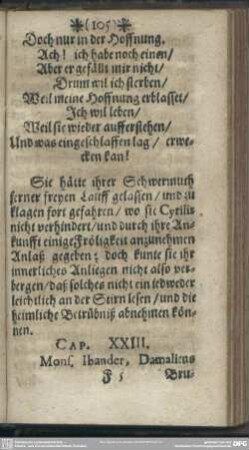 (105)
Doch nur in der Hoffnung.
Ach! ich habe noch einen/
Aber er gefällt mir nicht/
Drum wil ich sterben/
Weil meine Hoffnung erblasset/
Ich wil leben/
Weil sie wieder aufferstehen/
Und was eingeschlaffen lag/ erwe-
cken kan!
Sie hätte ihrer Schwermuth
ferner freyen Lauff gelassen/ und zu
klagen fort gefahren/ wo sie Cyrilis
nicht verhindert/ und durch ihre An-
kunfft einige Fröligkeit anzunehmen
Anlaß gegeben; doch kunte sie ihr
innerliches Anliegen nicht also ver-
bergen/ daß solches nicht ein iedweder
leichtlich an der Stirn lesen/ und die
heimliche Betrübniß abnehmen kön-
nen.
CAP. XXIII.
Mons. Ibander, Damalicus
F 5 Bru-